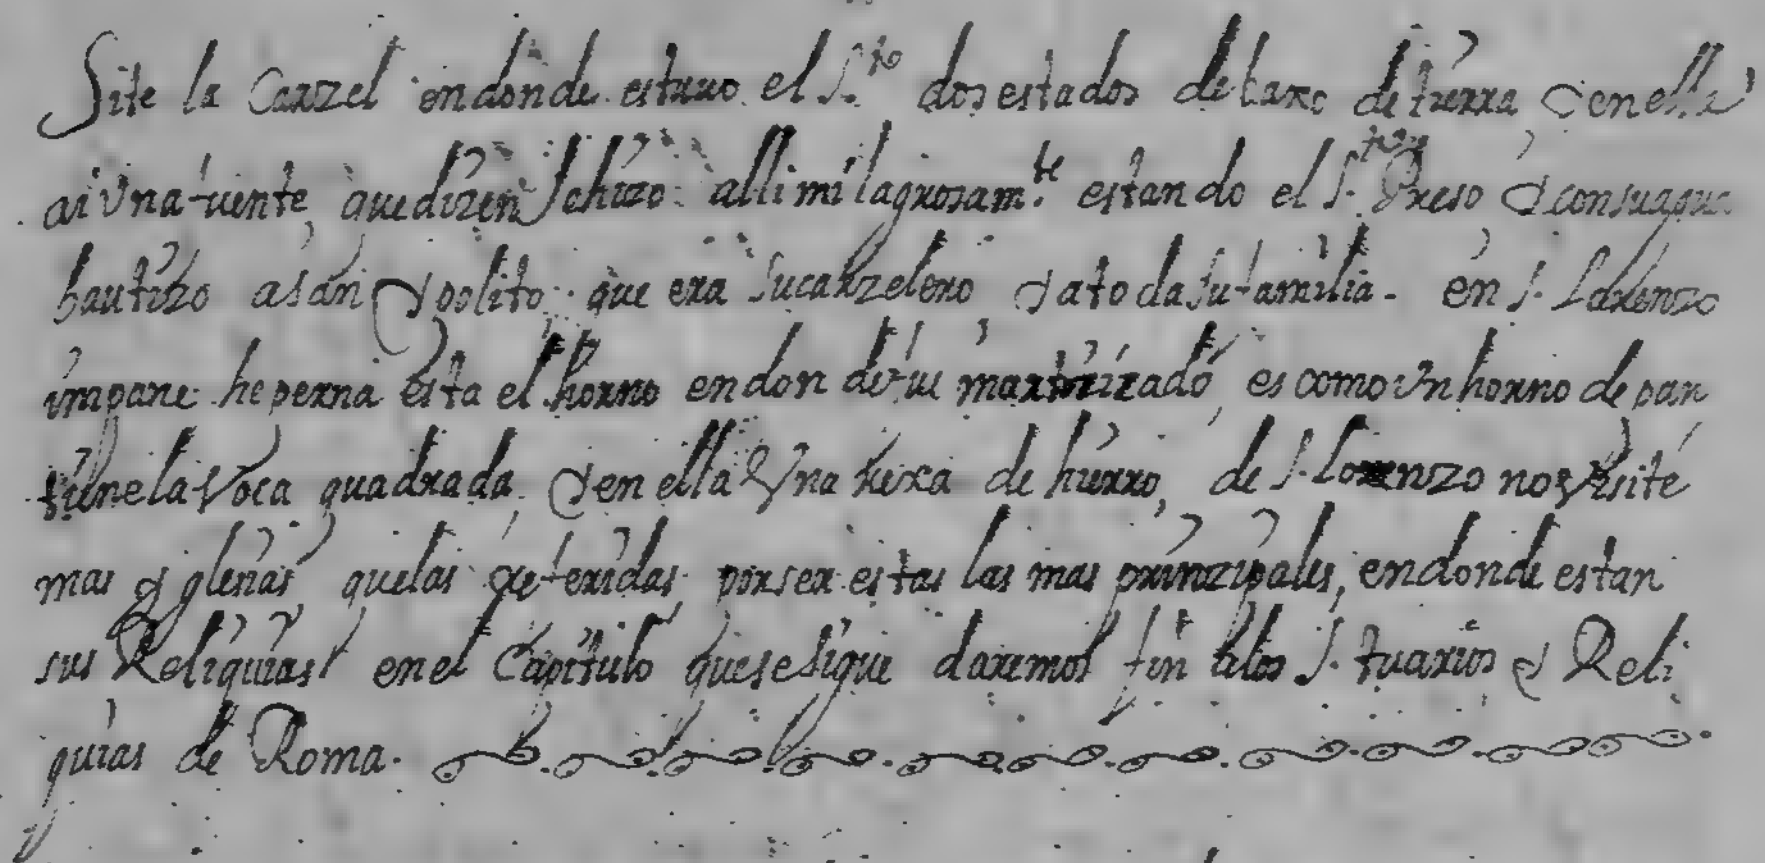 site la Carzel endonde estuuo el S.to dos estados debaxo de tierra, y en ella
ai vna fuente, que dizen se hizo alli milagrosam.te estando el S.to Preso y con su agua
bautizo a san ypolito que era su carzelero y a toda su familia. en S. Lorenzo
impane heperna esta el horno en donde fue martirizado, es como vn horno de pan
tiene la voca quadrada, y en ella vna rexa de hierro, de S. Lorenzo no visite
mas yglesias que las referidas, por ser estas las mas prinzipales, en donde estan
sus Reliquias en el Capitulo que se sigue daremos fin a los S.tuarios y Reli
quias de Roma.